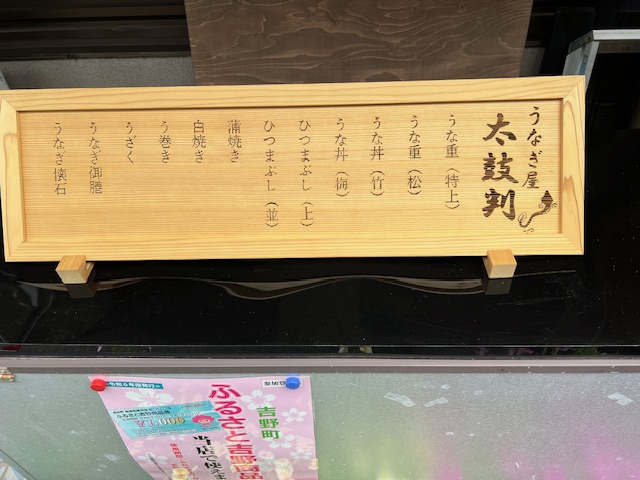 うなぎ屋
太鼓判
うな重（特上）
うな重（松）
うな丼（竹）
うな丼（梅）
ひつまぶし（上）
ひつまぶし（並）
蒲焼き
白焼き
う巻き
うざく
うなぎ御膳
うなぎ懐石
令和6年度発行
参加店
吉野町
ふるさと吉野
当店で使えま